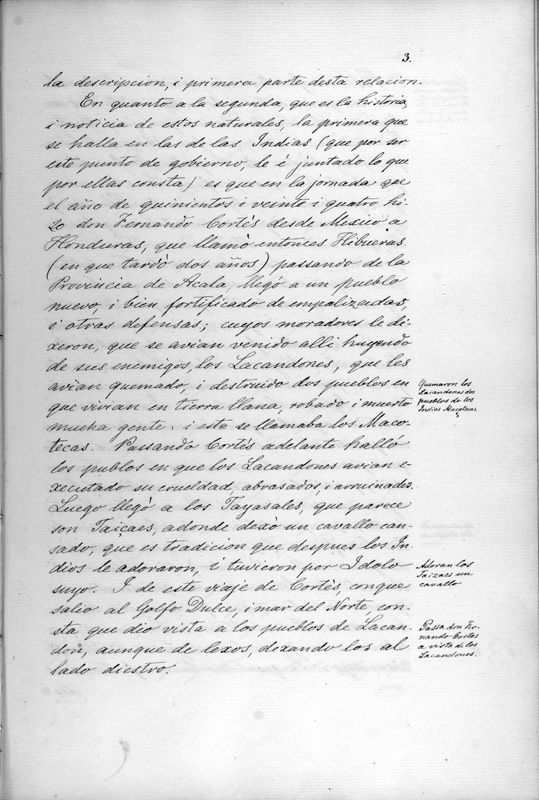 3.
la descripcion, i primera parte desta relacion.
En quanto a la segunda, que es la historia,
i noticia de estos naturales, la primera que
se halla en las de las Indias (que por ser
este punto de gobierno, le é juntado lo que
por ellas consta) es que en la jornada que
el año de quinientos i veinte i quatro hi-
zo don Fernando Cortés desde Mexico a
Honduras, que llamó entonces Hibueras
(en que tardò dos años) passando de la
Provincia de Acala, llegó a un pueblo
nuevo, i bien fortificado de empalizadas,
ó otras defensas; cuyos moradores le di-
xeron, que se avian venido alli huyendo
de sus enemigos, los Lacandones, que les
avian quemado, i destruido dos pueblos en
que vivian en tierra llana, robado i muerto
mucha gente: i esta se llamaba los Maco-
tecas. Passando Cortés adelante halló
los pueblos en que los Lacandones avian e-
xecutado su crueldad, abrasados, i arruinados.
Luego llegó a los Tayasales, que parece
son Taiçaes, adonde dexò un cavallo can-
sado, que es tradicion que despues los In-
dios le adoraron, i tuvieron por Idolo
suyo. I de este viaje de Cortés, conque
salio al Golfo Dulce, i mar del Norte, con-
sta que dio vista a los pueblos de Lacan-
don, aunque de lexos, dexando los al
lado diestro.
Quemaron los
Lacandones dos
pueblos de los
Indios Macotecas.
Adoran los
Taizaes un
cavallo
Passa don Fer-
nando Cortes
a vista de los
Lacandones.